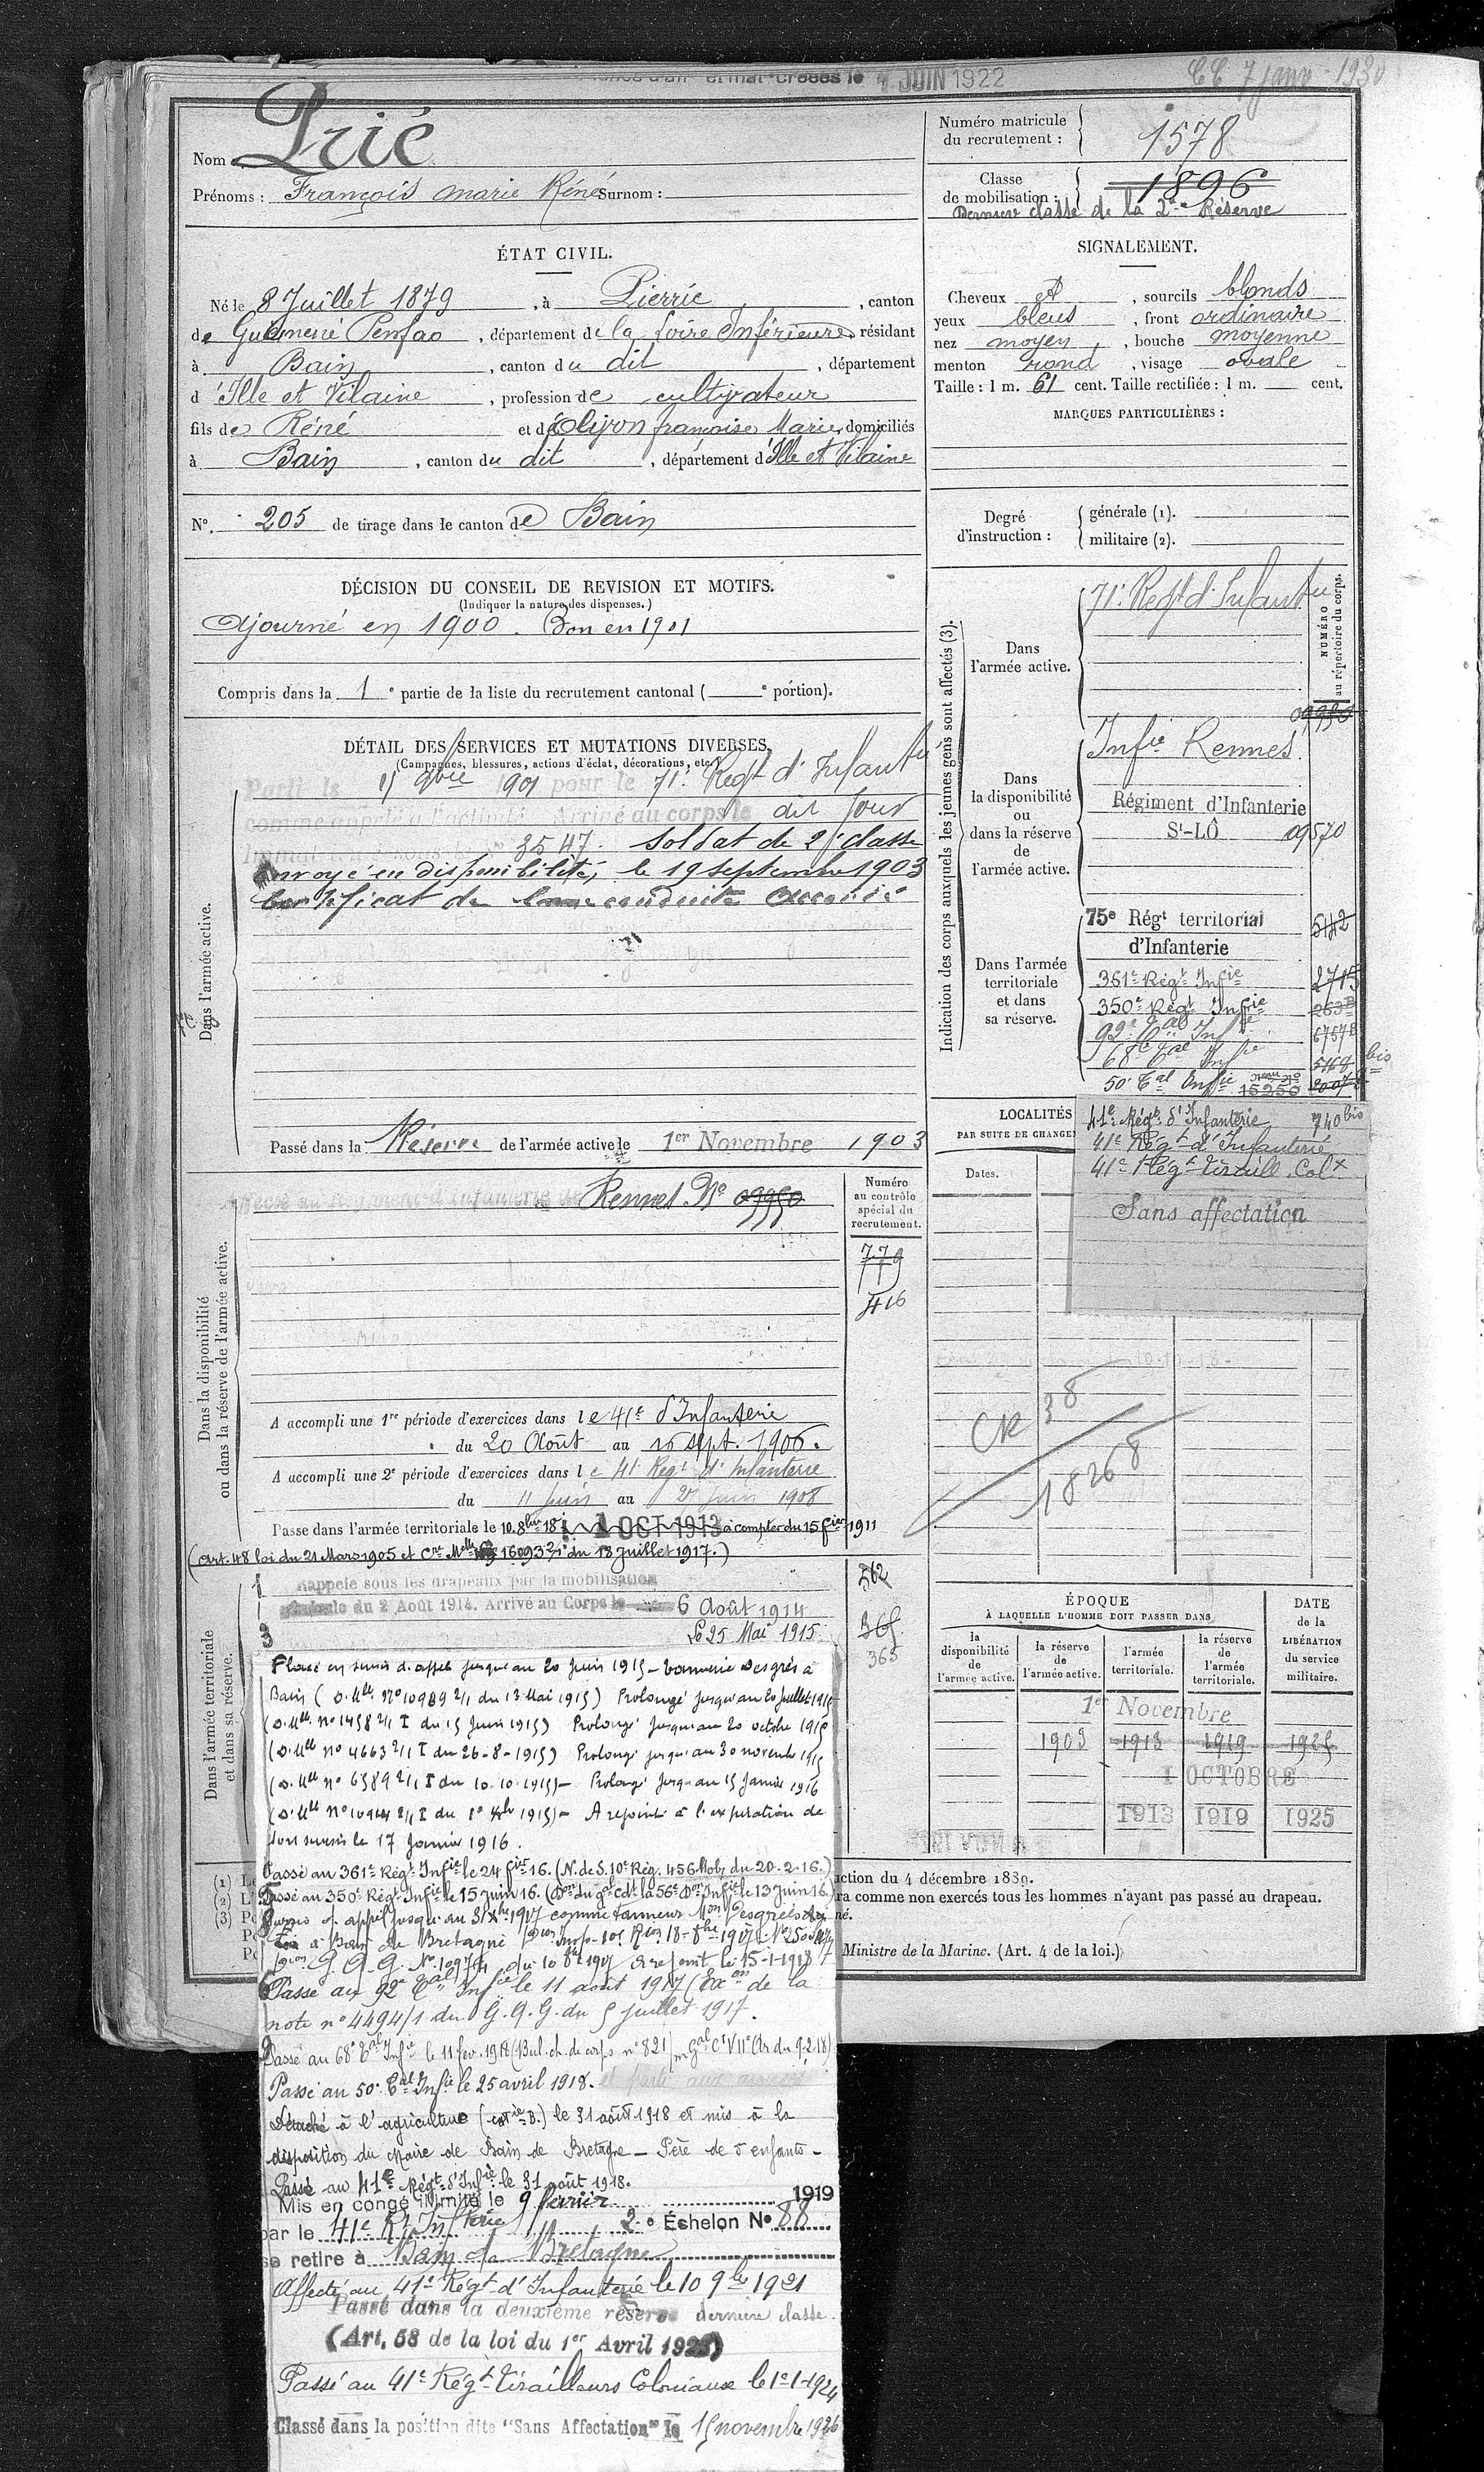 et mat. créées le 1 JUIN 1922
CC 7 janv 1930
Nom : Prié
Prénoms : François Marie Réné Surnom :
ÉTAT CIVIL.
Né le 8 Juillet 1879, à Pierric, canton
de Guémené Penfao, département de la Loire Inférieure, résidant
à Bain, canton du dit, département
d'Ille et Vilaine, profession de cultivateur
fils de Réné et de Olivon françoise Marie, domiciliés
à Bain, canton du dit, département d'Ille et Vilaine
N° 205 de tirage dans le canton de Bain
DÉCISION DU CONSEIL DE REVISION ET MOTIFS.
(Indiquer la nature des dispenses.)
Ajourné en 1900. Bon en 1901
Compris dans la 1e partie de la liste du recrutement cantonal ( e portion).
DÉTAIL DES SERVICES ET MUTATIONS DIVERSES.
(Campagnes, blessures, actions d'éclat, décorations, etc.)
Dans l'armée active.
Parti le 15 9bre 1901 pour le 71e Regt d'Infantie
comme appelé à l'activité. Arrivé au corps le dit jour
3547. soldat de 2e classe
Envoyé en disponibilité, le 19 septembre 1903
Certificat de bonne conduite accordé
Passé dans la Réserve de l'armée active le 1er Novembre 1903
Dans la disponibilité
ou dans la réserve de l'armée active.
Affecté au Régiment d'Infanterie de Rennes N° 09950
Numéro
au contrôle
spécial du
recrutement.
779
416
A accompli une 1re période d'exercices dans le 41e d'Infanterie
du 20 Août au 16 Sept. 1906.
A accompli une 2e période d'exercices dans le 41 Regt d'Infanterie
du 11 Juin au 27 Juin 1908
Passé dans l'armée territoriale le 10.8bre 18 1 OCT 1913 à compter du 15 fier 1911
(Art. 48 loi du 21 Mars 1905 et Cre Mlle 16093 2/1 du 18 Juillet 1917.)
Dans l'armée territoriale
et dans sa réserve.
Rappelé sous les drapeaux par la mobilisation
générale du 2 Août 1914. Arrivé au Corps le 6 Août 1914
Le 25 Mai 1915
562
365
365
Placé en sursis d'appel jusqu'au 20 Juin 1915 – tannerie Desgrés à
Bain (D. Mlle N° 10989 2/1 du 13 Mai 1915) Prolongé jusqu'au 20 Juillet 1915
(D. Mlle N° 1458 2/1 I du 15 Juin 1915) Prolongé jusqu'au 20 octobre 1915
(D. Mlle N° 4663 2/1 I du 26-8-1915) Prolongé jusqu'au 30 novembre 1915
(D. Mlle N° 6589 2/1 I du 10-10-1915) – Prolongé jusqu'au 15 Janvier 1916
(D. Mlle N° 2/1 I du 1er Xbre 1915) – A rejoint à l'expiration de
son sursis le 17 Janvier 1916.
Passé au 361e Régt Infie le 24 fier 16. (N. de S. 10e Rég. 456 Mob du 20-2-16.)
Passé au 350e Régt Infie le 15 juin 16. (Don du gal Cdt la 56e Don Infie le 13 Juin 16)
Sursis d'appel jusqu'au 31 Xbre 1917 comme tanneur Mon Desgrées
à Bain de Bretagne
G.Q.G. N° du 10 8bre 1917 a rejoint le 15-1-1918
Passé au 92e tal Infie le 11 août 1917 (Exon de la
note n° 4494/1 du G.Q.G. du 5 juillet 1917.
Passé au 68e tal Infie le 11 fev. 1918 (Bul. ch. de corps n° 821/m Gal Ct VIIe Ar du 9.2.18)
Passé au 50e tal Infie le 25 avril 1918. et parti aux armées
Détaché à l'agriculture (catie B.) le 31 août 1918 et mis à la
disposition du Maire de Bain de Bretagne – Père de 5 enfants –
Passé au 41e Régt d'Infie le 31 août 1918.
Mis en congé illimité le 9 février 1919
par le 41e Rt Infterie 2e Échelon N° 88
se retire à Bain de Bretagne
Affecté au 41e Régt d'Infanterie le 10 9bre 1921
Passé dans la deuxième réserve dernière classe.
(Art. 58 de la loi du 1er Avril 1923)
Passé au 41e Régt Tirailleurs Coloniaux le 1e-1-1924
Classé dans la position dite "Sans Affectation" le 15 novembre 1926
Numéro matricule
du recrutement : 1578
Classe
de mobilisation : 1896
Dernière classe de la 2me Réserve
SIGNALEMENT.
Cheveux et, sourcils blonds
yeux bleus, front ordinaire
nez moyen, bouche moyenne
menton rond, visage ovale
Taille : 1 m. 61 cent. Taille rectifiée : 1 m. cent.
MARQUES PARTICULIÈRES :
Degré
d'instruction :
générale (1).
militaire (2).
Indication des corps auxquels les jeunes gens sont affectés (3).
NUMÉRO
au répertoire du corps.
Dans
l'armée active.
71e Regt d'Infantie
09950
Dans
la disponibilité
ou
dans la réserve
de
l'armée active.
Infie Rennes
Régiment d'Infanterie
St-LÔ 09570
Dans l'armée
territoriale
et dans
sa réserve.
75e Régt territorial 542
d'Infanterie
361e Régt Infie 2715
350e Régt Infie
92e tal Infie 67578
68e tal Infie 5168 bis
50e tal Infie nouv N° 15250
41e Régt d'Infanterie 740 bis
41e Régt d'Infanterie
41e Régt Tiraill. Colx
Sans affectation
LOCALITÉS
PAR SUITE DE CHANGE
Dates.
CR 38
18268
ÉPOQUE
À LAQUELLE L'HOMME DOIT PASSER DANS
DATE
de la
LIBÉRATION
du service
militaire.
la
disponibilité
de
l'armée active.
la réserve
de
l'armée active.
l'armée
territoriale.
la réserve
de
l'armée
territoriale.
1er Novembre
1903 1913 1919 1925
1 OCTOBRE
1913 1919 1925
(1) L
(2) L
(3) P
ction du 4 décembre 1889.
ra comme non exercés tous les hommes n'ayant pas passé au drapeau.
né.
Ministre de la Marine. (Art. 4 de la loi.)